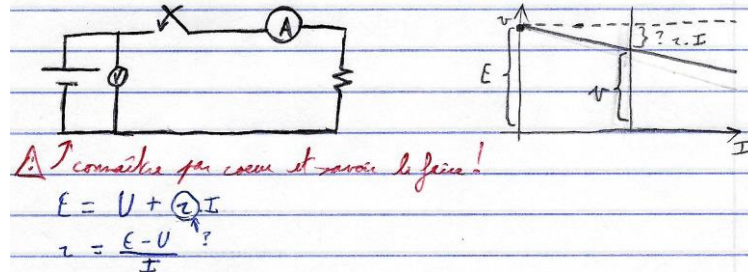 A
V
v
} ? r.I
E {
v {
I
⚠ ↑ connaître par cœur et savoir le faire !
E = U + r.I
?
r = E-U / I